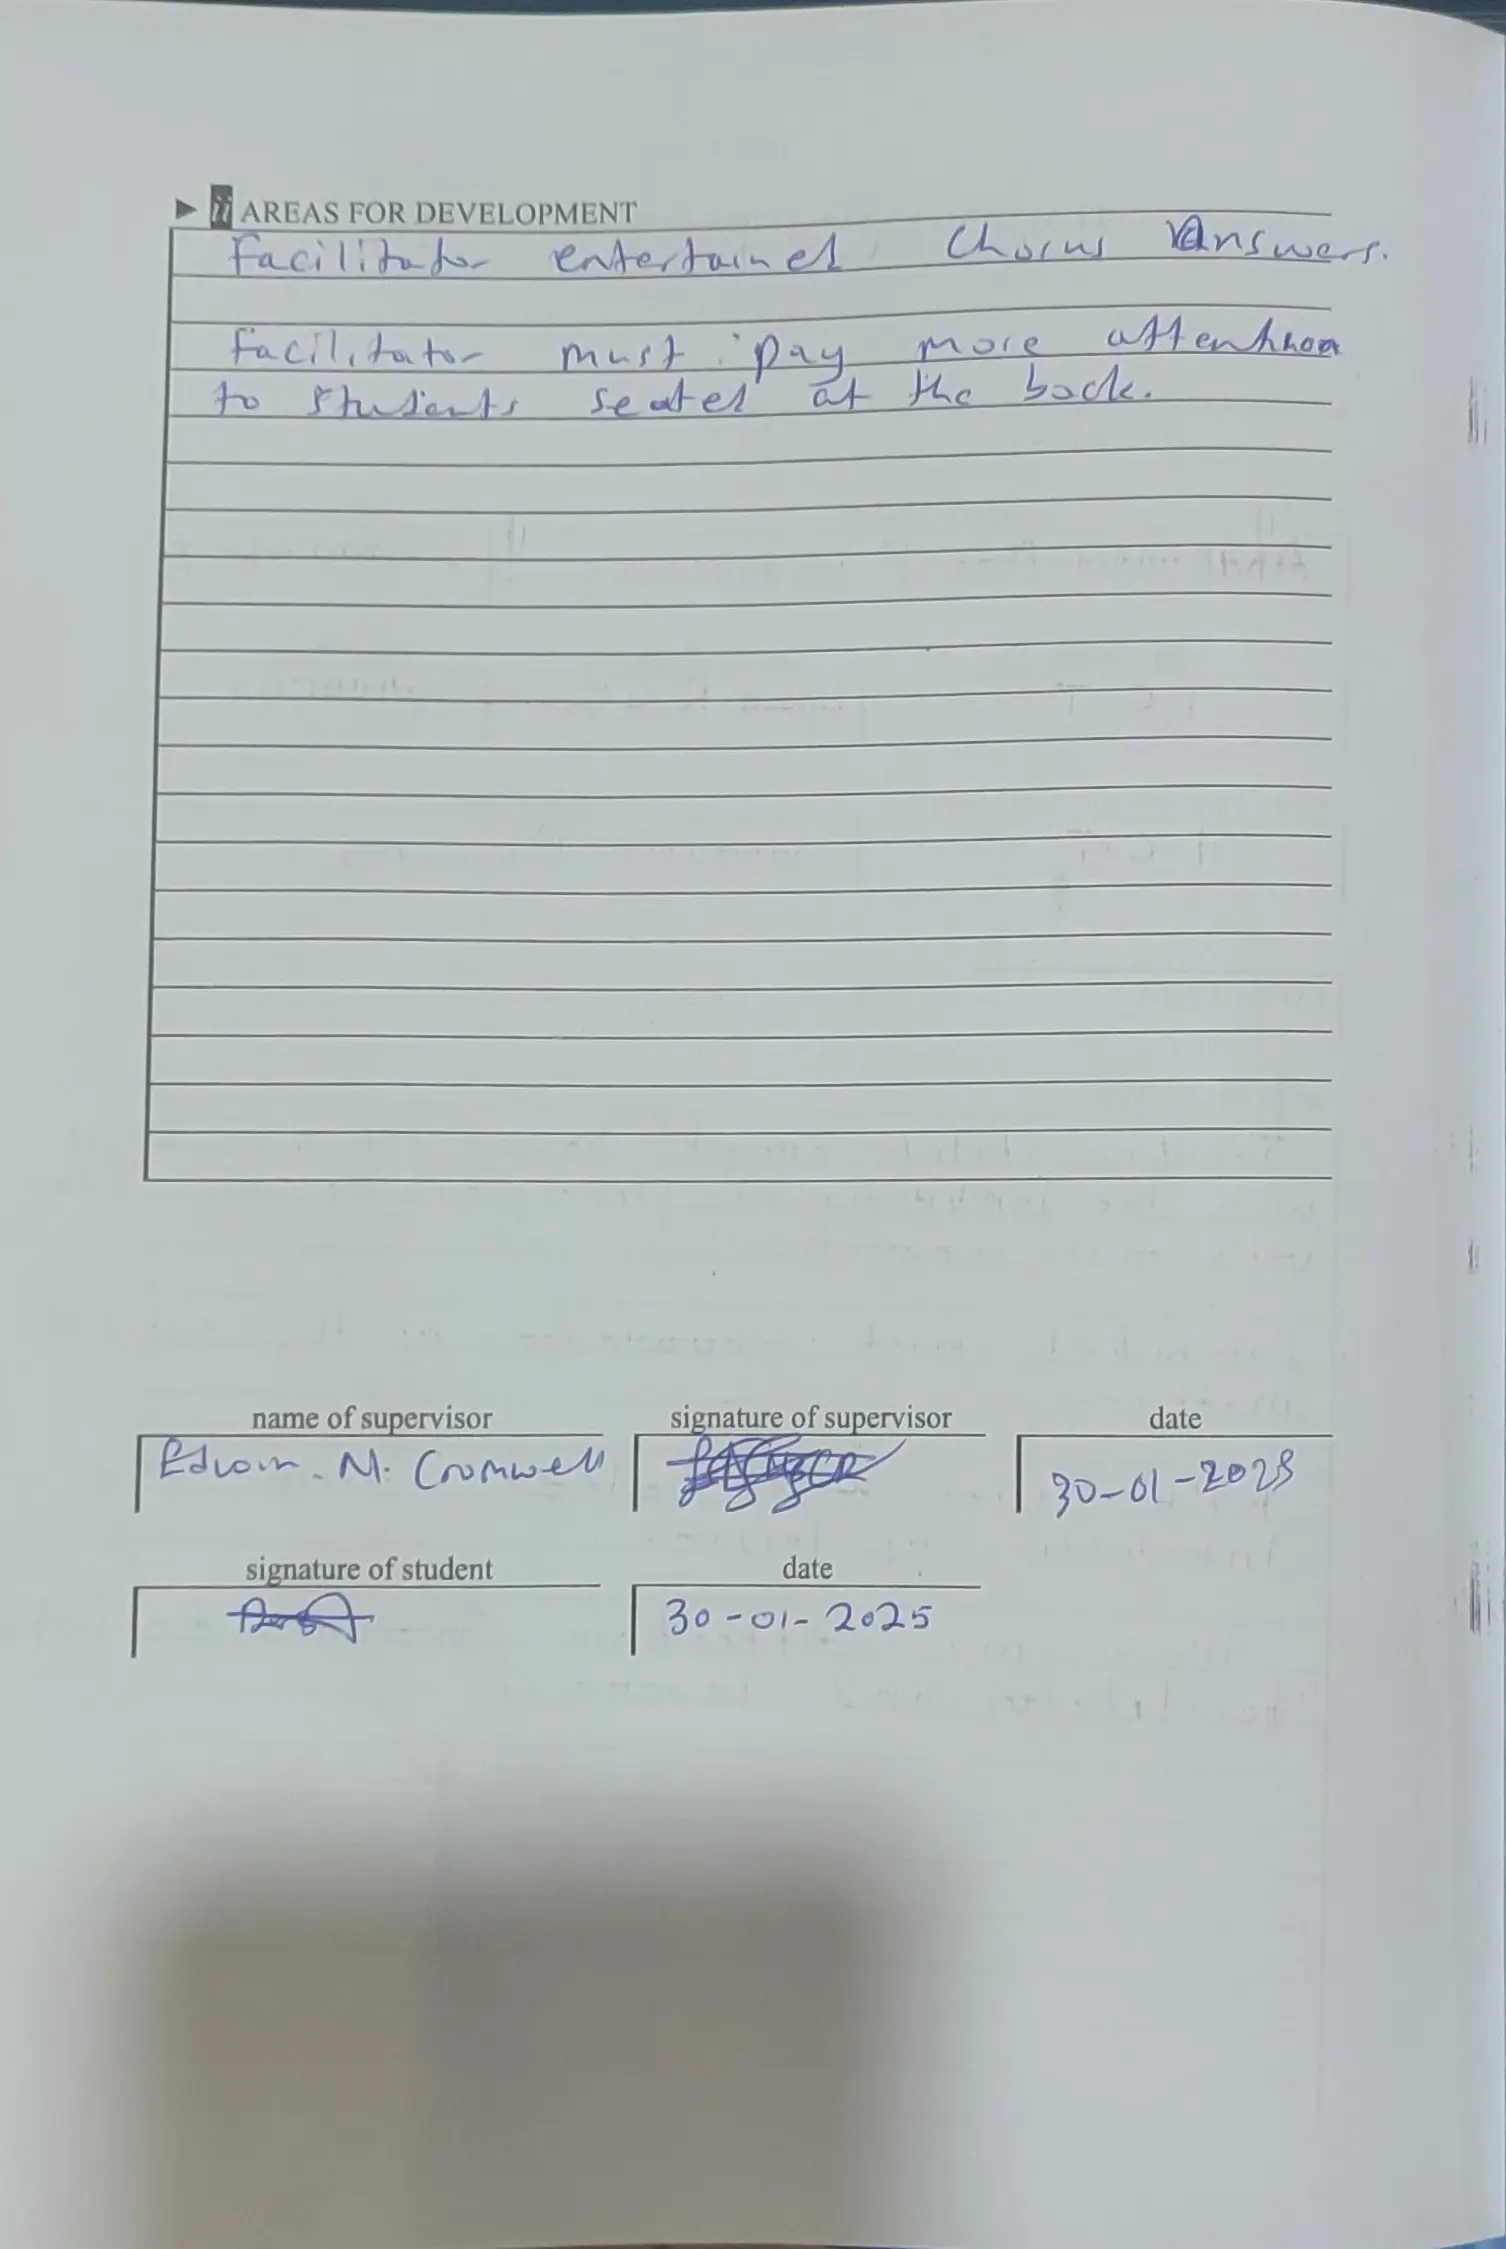 AREAS FOR DEVELOPMENT
Facilitator entertained chorus answers.
Facilitator must pay more attention
to students seated at the back.
name of supervisor signature of supervisor date
Edwin N. Cromwell 30-01-2025
signature of student date
30-01-2025